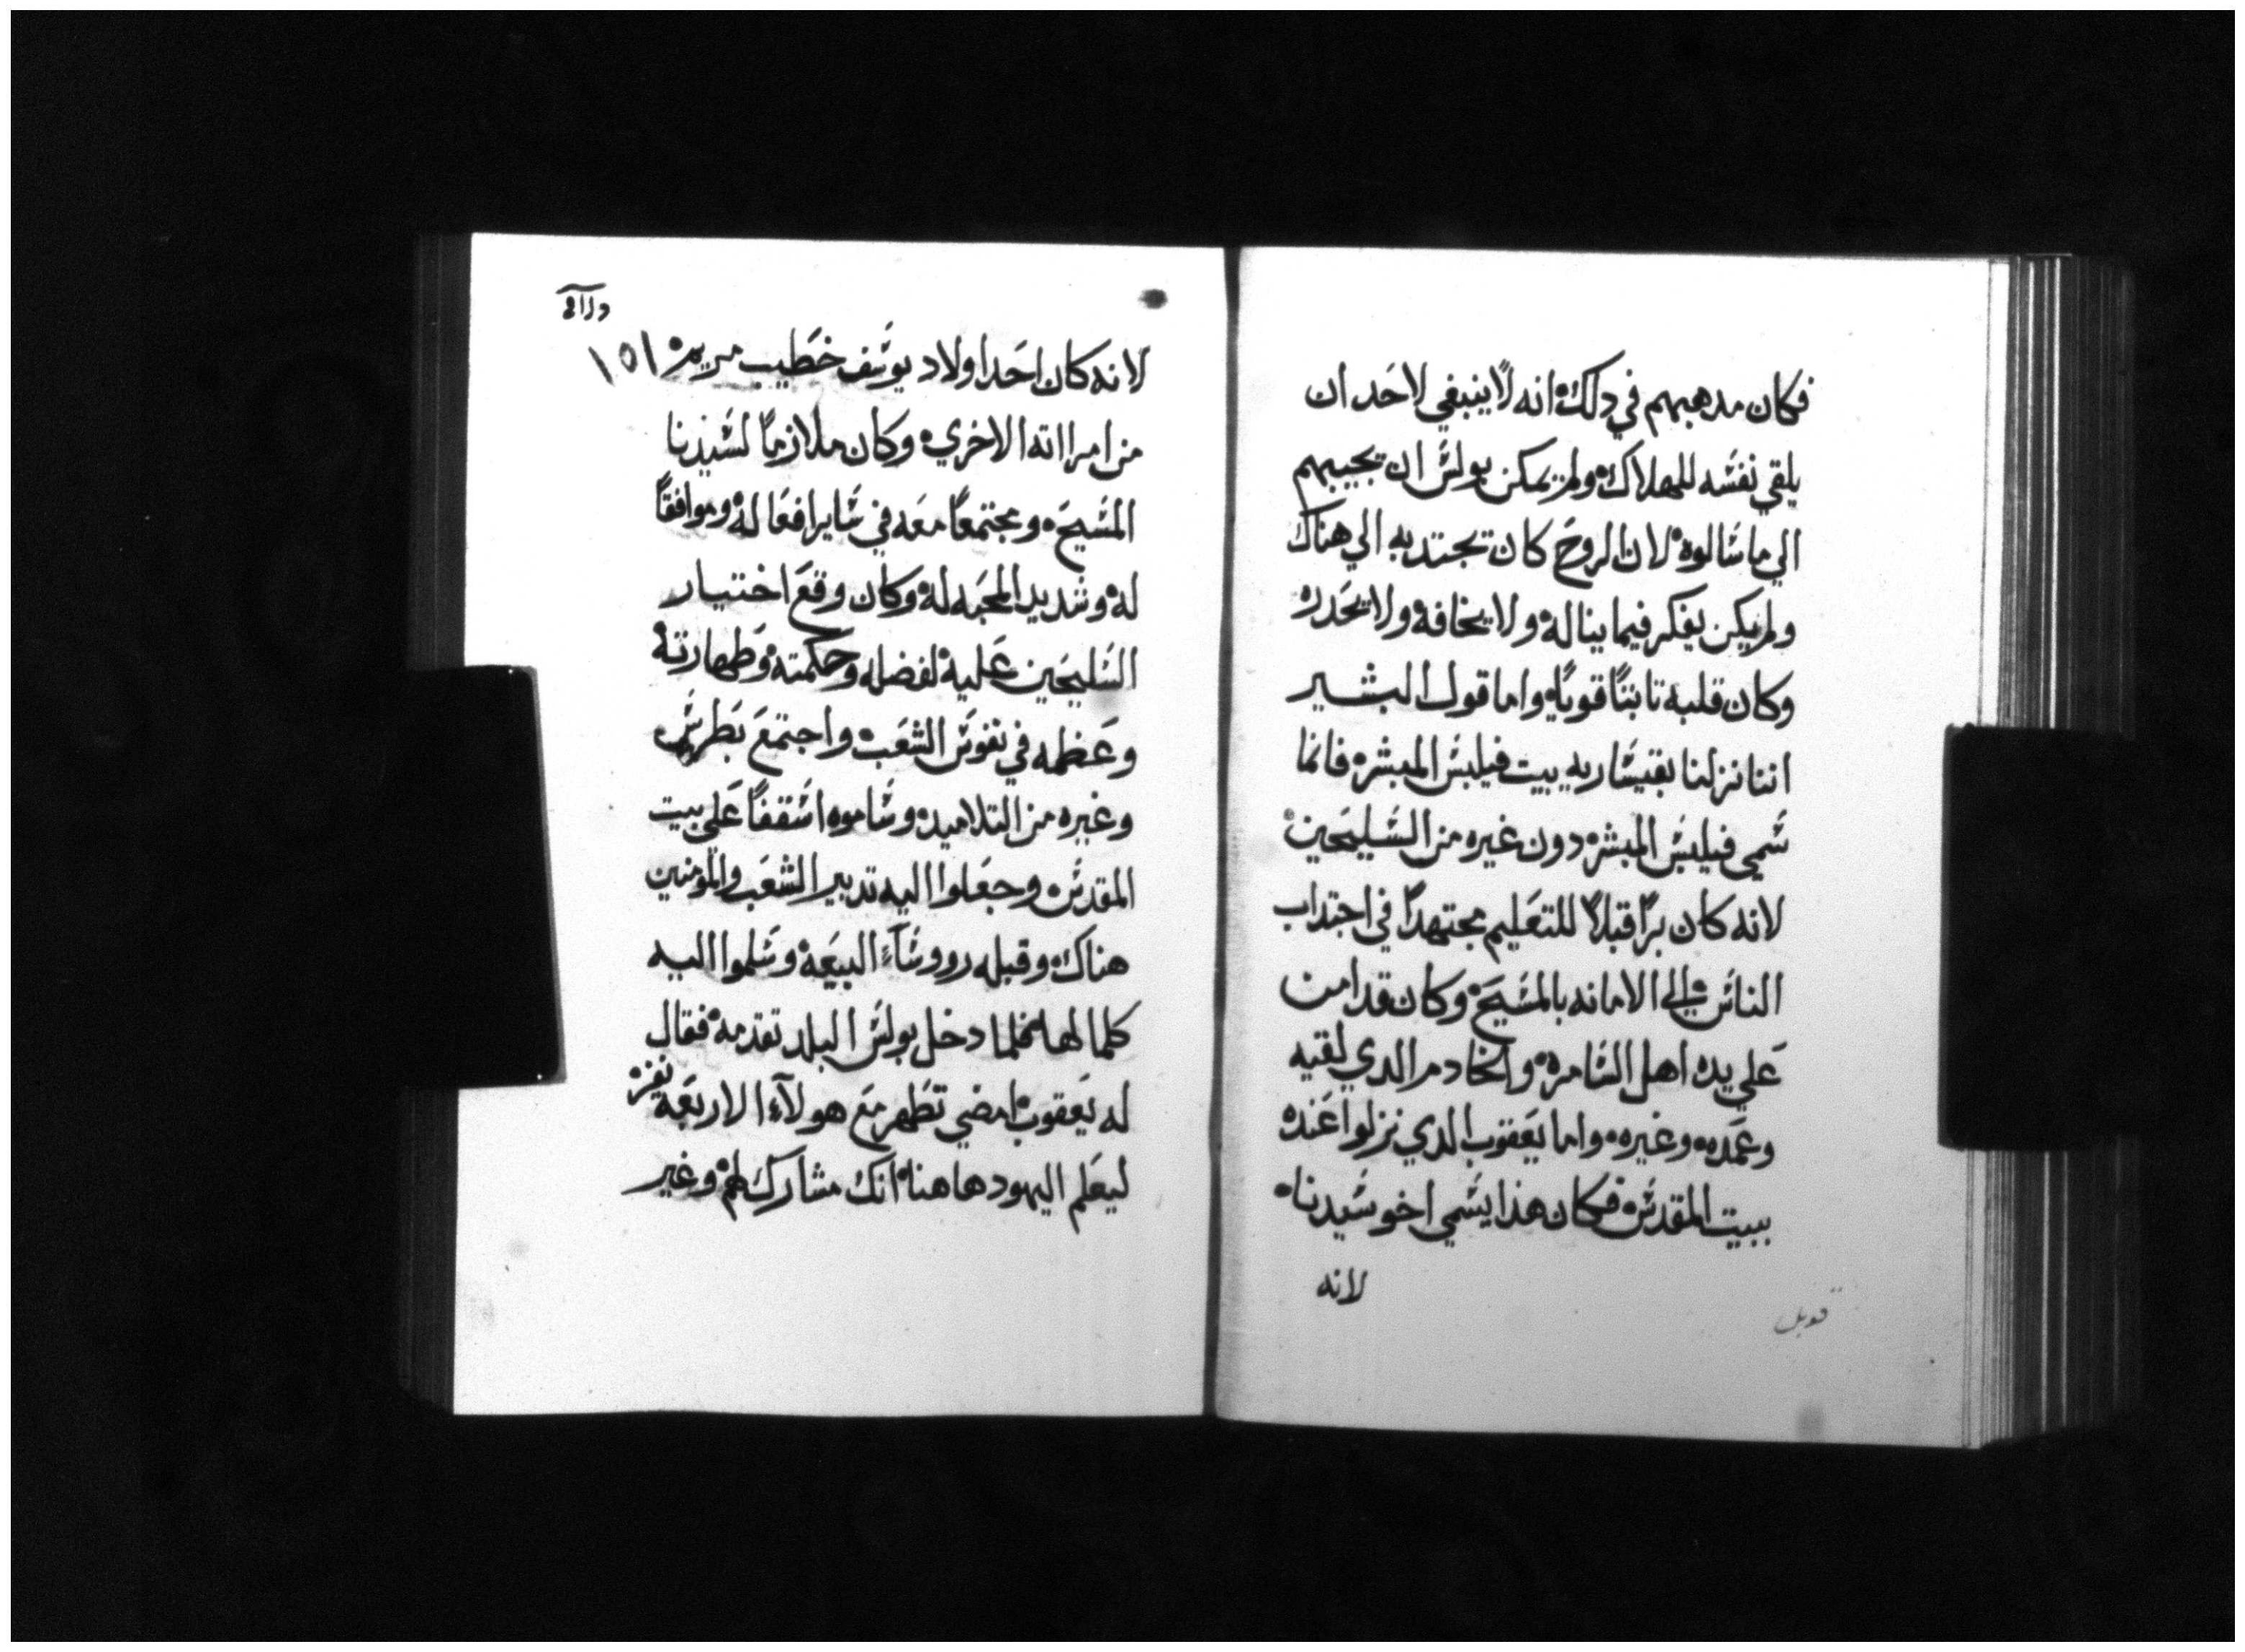 فكان مدهبهم في دلك انه لا ينبغي لاحد ان
يلقي نفسه للهلاك ولم يمكن بولس ان يجيبهم
الي ما سالوه لان الروح كان تجتدبه الي هناك
ولم يكن يفكر فيما يناله ولا يخافه ولا يحدره
وكان قلبه تابتًا قويًا واما قول البشير
اننا نزلنا بقيساريه بيت فيلبس المبشر فانما
سمي فيلبس المبشر دون غيره من السليحين
لانه كان برًا قبلاً للتعليم مجتهدًا في اجتداب
الناس الي الامانه بالمسيح وكان قد امن
علي يده اهل السامره والخادم الدي لقيه
وعمده وغيره واما يعقوب الدي نزلوا عنده
ببيت المقدس فكان هذا يسمي اخو سيدنا
لانه
قوبل
١٥١
لانه كان احد اولاد يوسف خطيب مريم
من امرااته الاخري وكان ملازمًا لسيدنا
المسيح ومجتمعًا معه في ساير افعاله وموافقًا
له وشديد المحبه له وكان وقع اختيار
السليحين عليه لفضله وحكمته وطهارته
وعظمه في نفوس الشعب واجتمع بطرس
وغيره من التلاميد وساموه اسقفًا علي بيت
المقدس وجعلوا اليه تدبير الشعب والمومنين
هناك وقبله رووسآء البيعه وسلموا اليه
كلما لها فلما دخل بولس البلد تقدمه فقال
له يعقوب امضي تطهر مع هولآء الاربعة نفر
ليعلم اليهود هاهنا انك مشارك لهم وغير